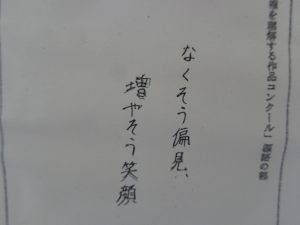 権を理解する作品コンクール」標語の部
なくそう偏見、
増やそう笑顔